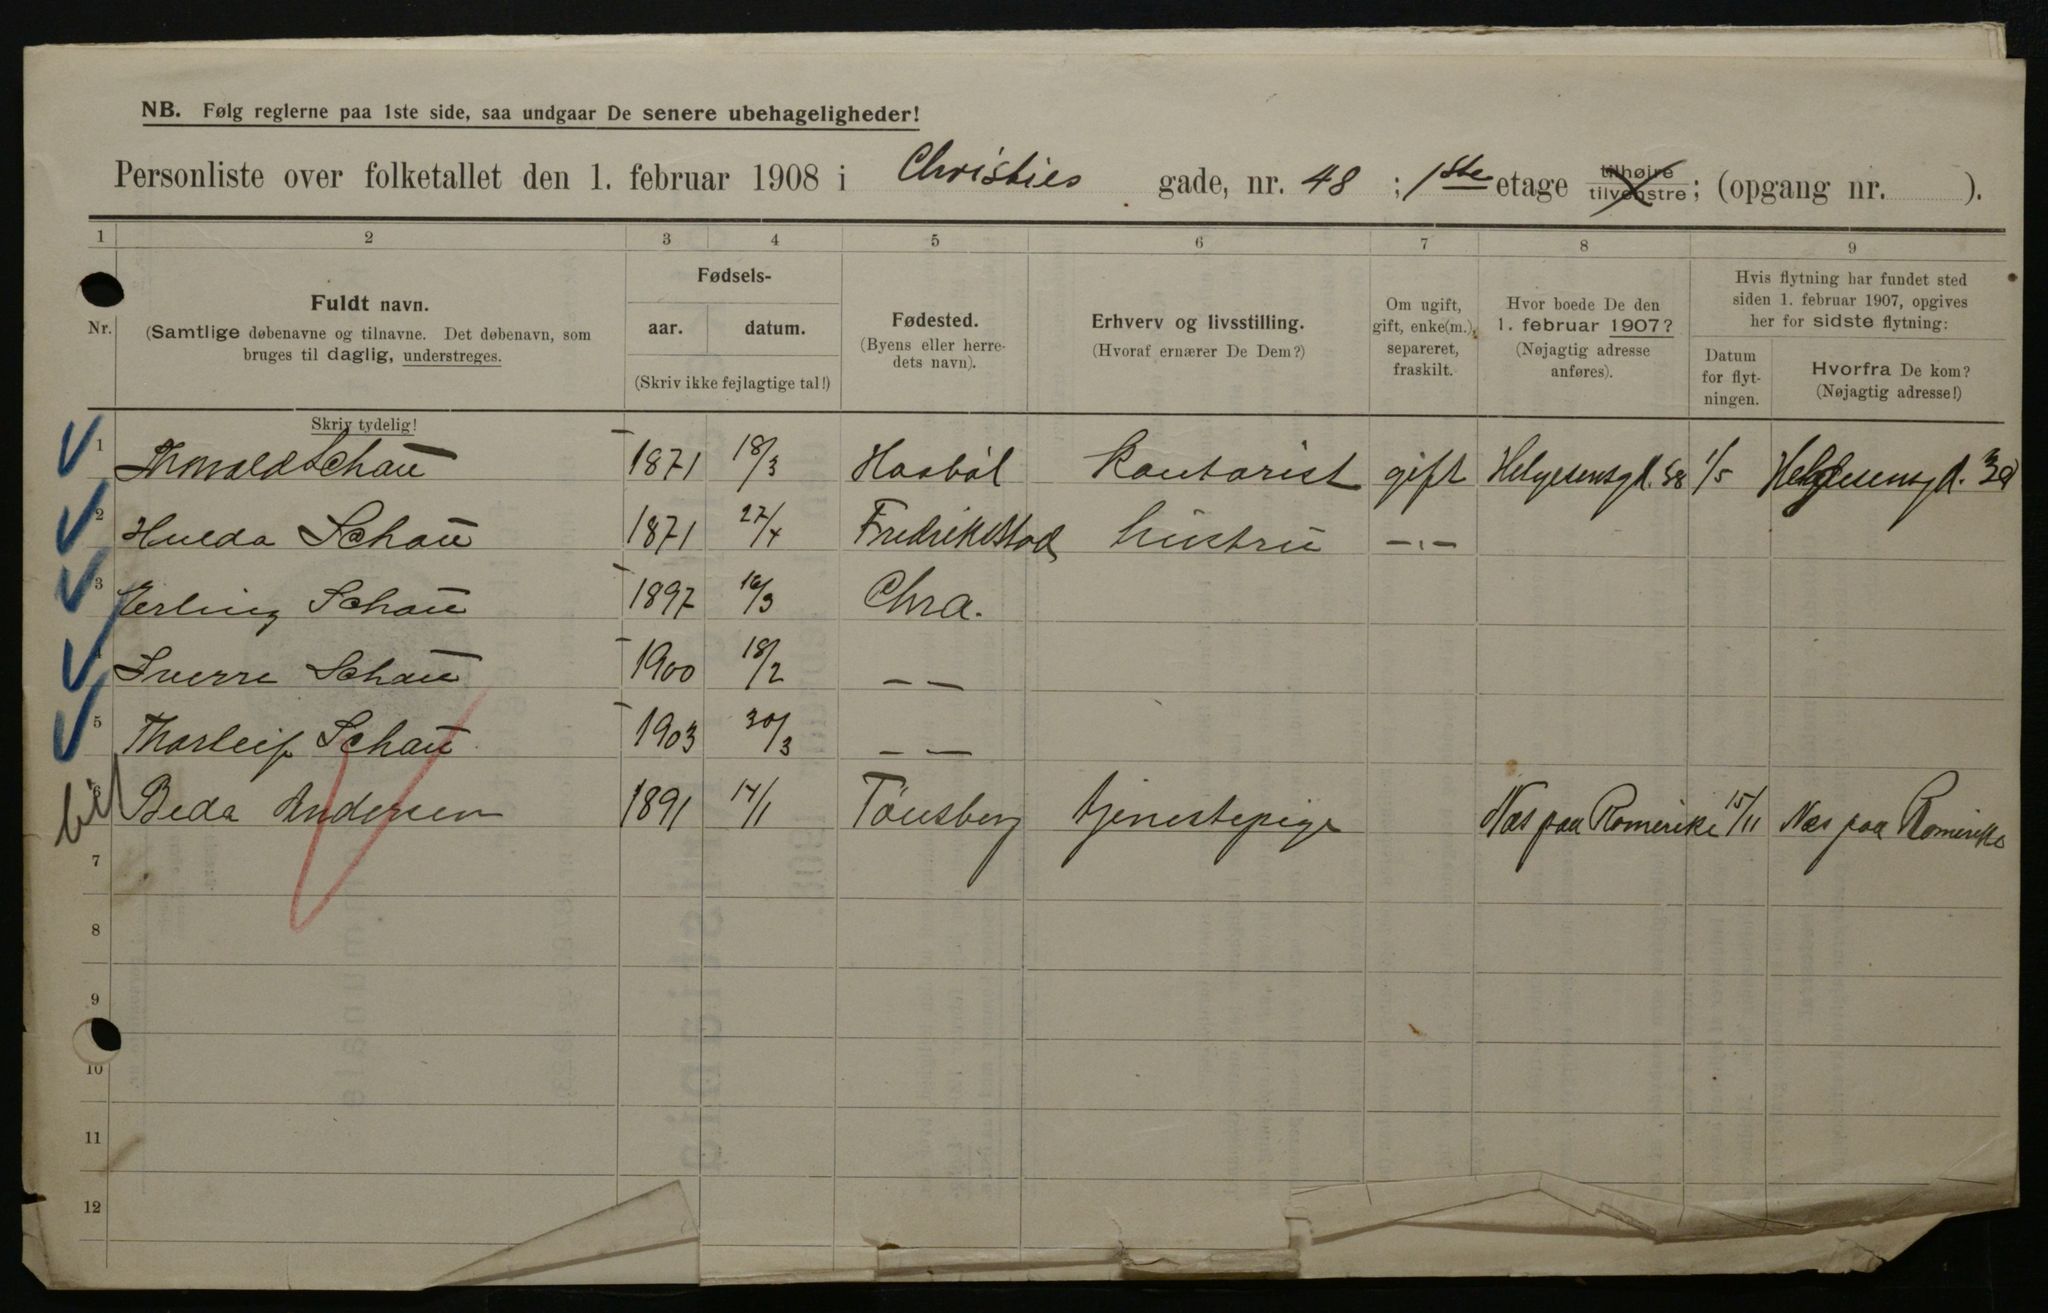 NB. Følg reglerne paa 1ste side, saa undgaar De senere ubehageligheder!
Personliste over folketallet den 1. februar 1908 i Christies gade, nr. 48 ; 1ste etage tilhøire tilvenstre; (opgang nr. ).
1 2 3 4 5 6 7 8 9
Nr.
Fuldt navn.
(Samtlige døbenavne og tilnavne. Det døbenavn, som
bruges til daglig, understreges.
Skriv tydelig!
Fødsels-
aar. datum.
(Skriv ikke fejlagtige tal!)
Fødested.
(Byens eller herre-
dets navn).
Erhverv og livsstilling.
(Hvoraf ernærer De Dem?)
Om ugift,
gift, enke(m.),
separeret,
fraskilt.
Hvor boede De den
1. februar 1907?
(Nøjagtig adresse
anføres).
Hvis flytning har fundet sted
siden 1. februar 1907, opgives
her for sidste flytning:
Datum
for flyt-
ningen.
Hvorfra De kom?
(Nøjagtig adresse!)
1 Thorvald Schau 1871 18/3 Hasbøl kontorist gift Helgesensgd. 38 1/5 Helgesensgd. 38
2 Hulda Schau 1871 27/4 Fredrikstad hustru —"—
3 Erling Schau 1897 16/3 Chra.
4 Sverre Schau 1900 18/2 — —
5 Thorleif Schau 1903 30/3 — —
6 Beda Andersen 1891 14/11 Tönsberg tjenestepige Næs paa Romerike 15/11 Næs paa Romerike
7
8
9
10
11
12